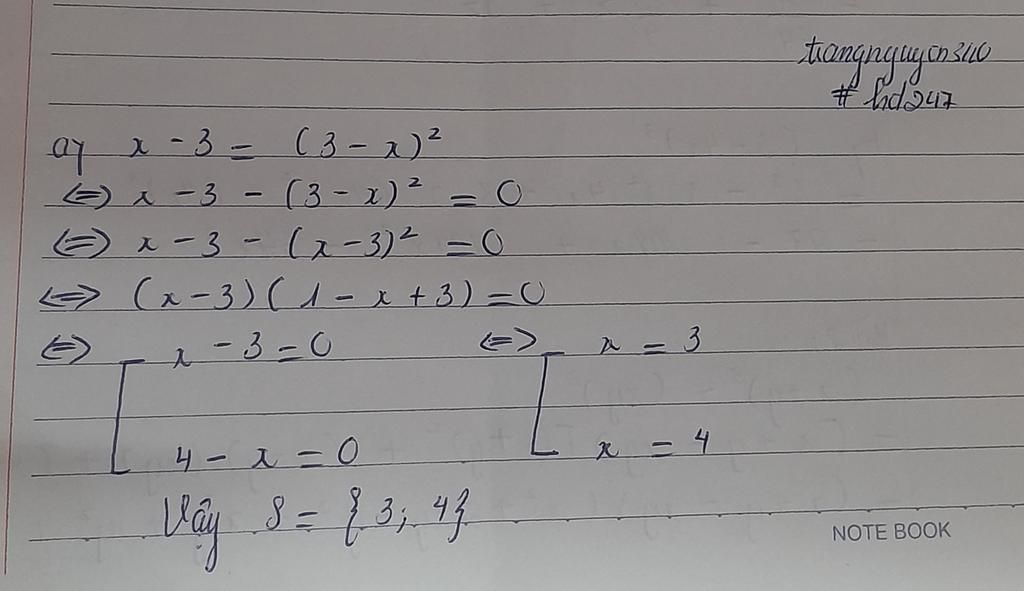 trangnguyen340
# hd247
a, x - 3 = (3 - x)²
<=> x - 3 - (3 - x)² = 0
<=> x - 3 - (x - 3)² = 0
<=> (x - 3)(1 - x + 3) = 0
<=> [ x - 3 = 0 <=> [ x = 3
4 - x = 0 x = 4
Vậy S = {3; 4}
NOTE BOOK